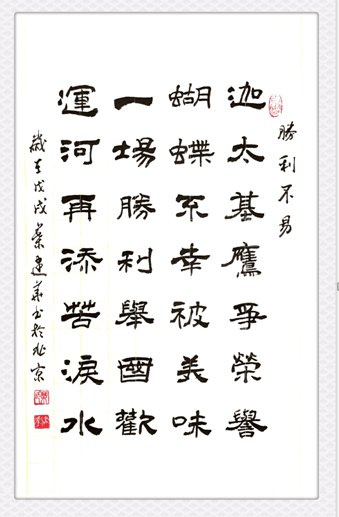 勝利不易
迦太基鷹爭榮譽
蝴蝶不幸被美味
一場勝利舉國歡
運河再添苦淚水
歲在戊戌榮建華書於北京